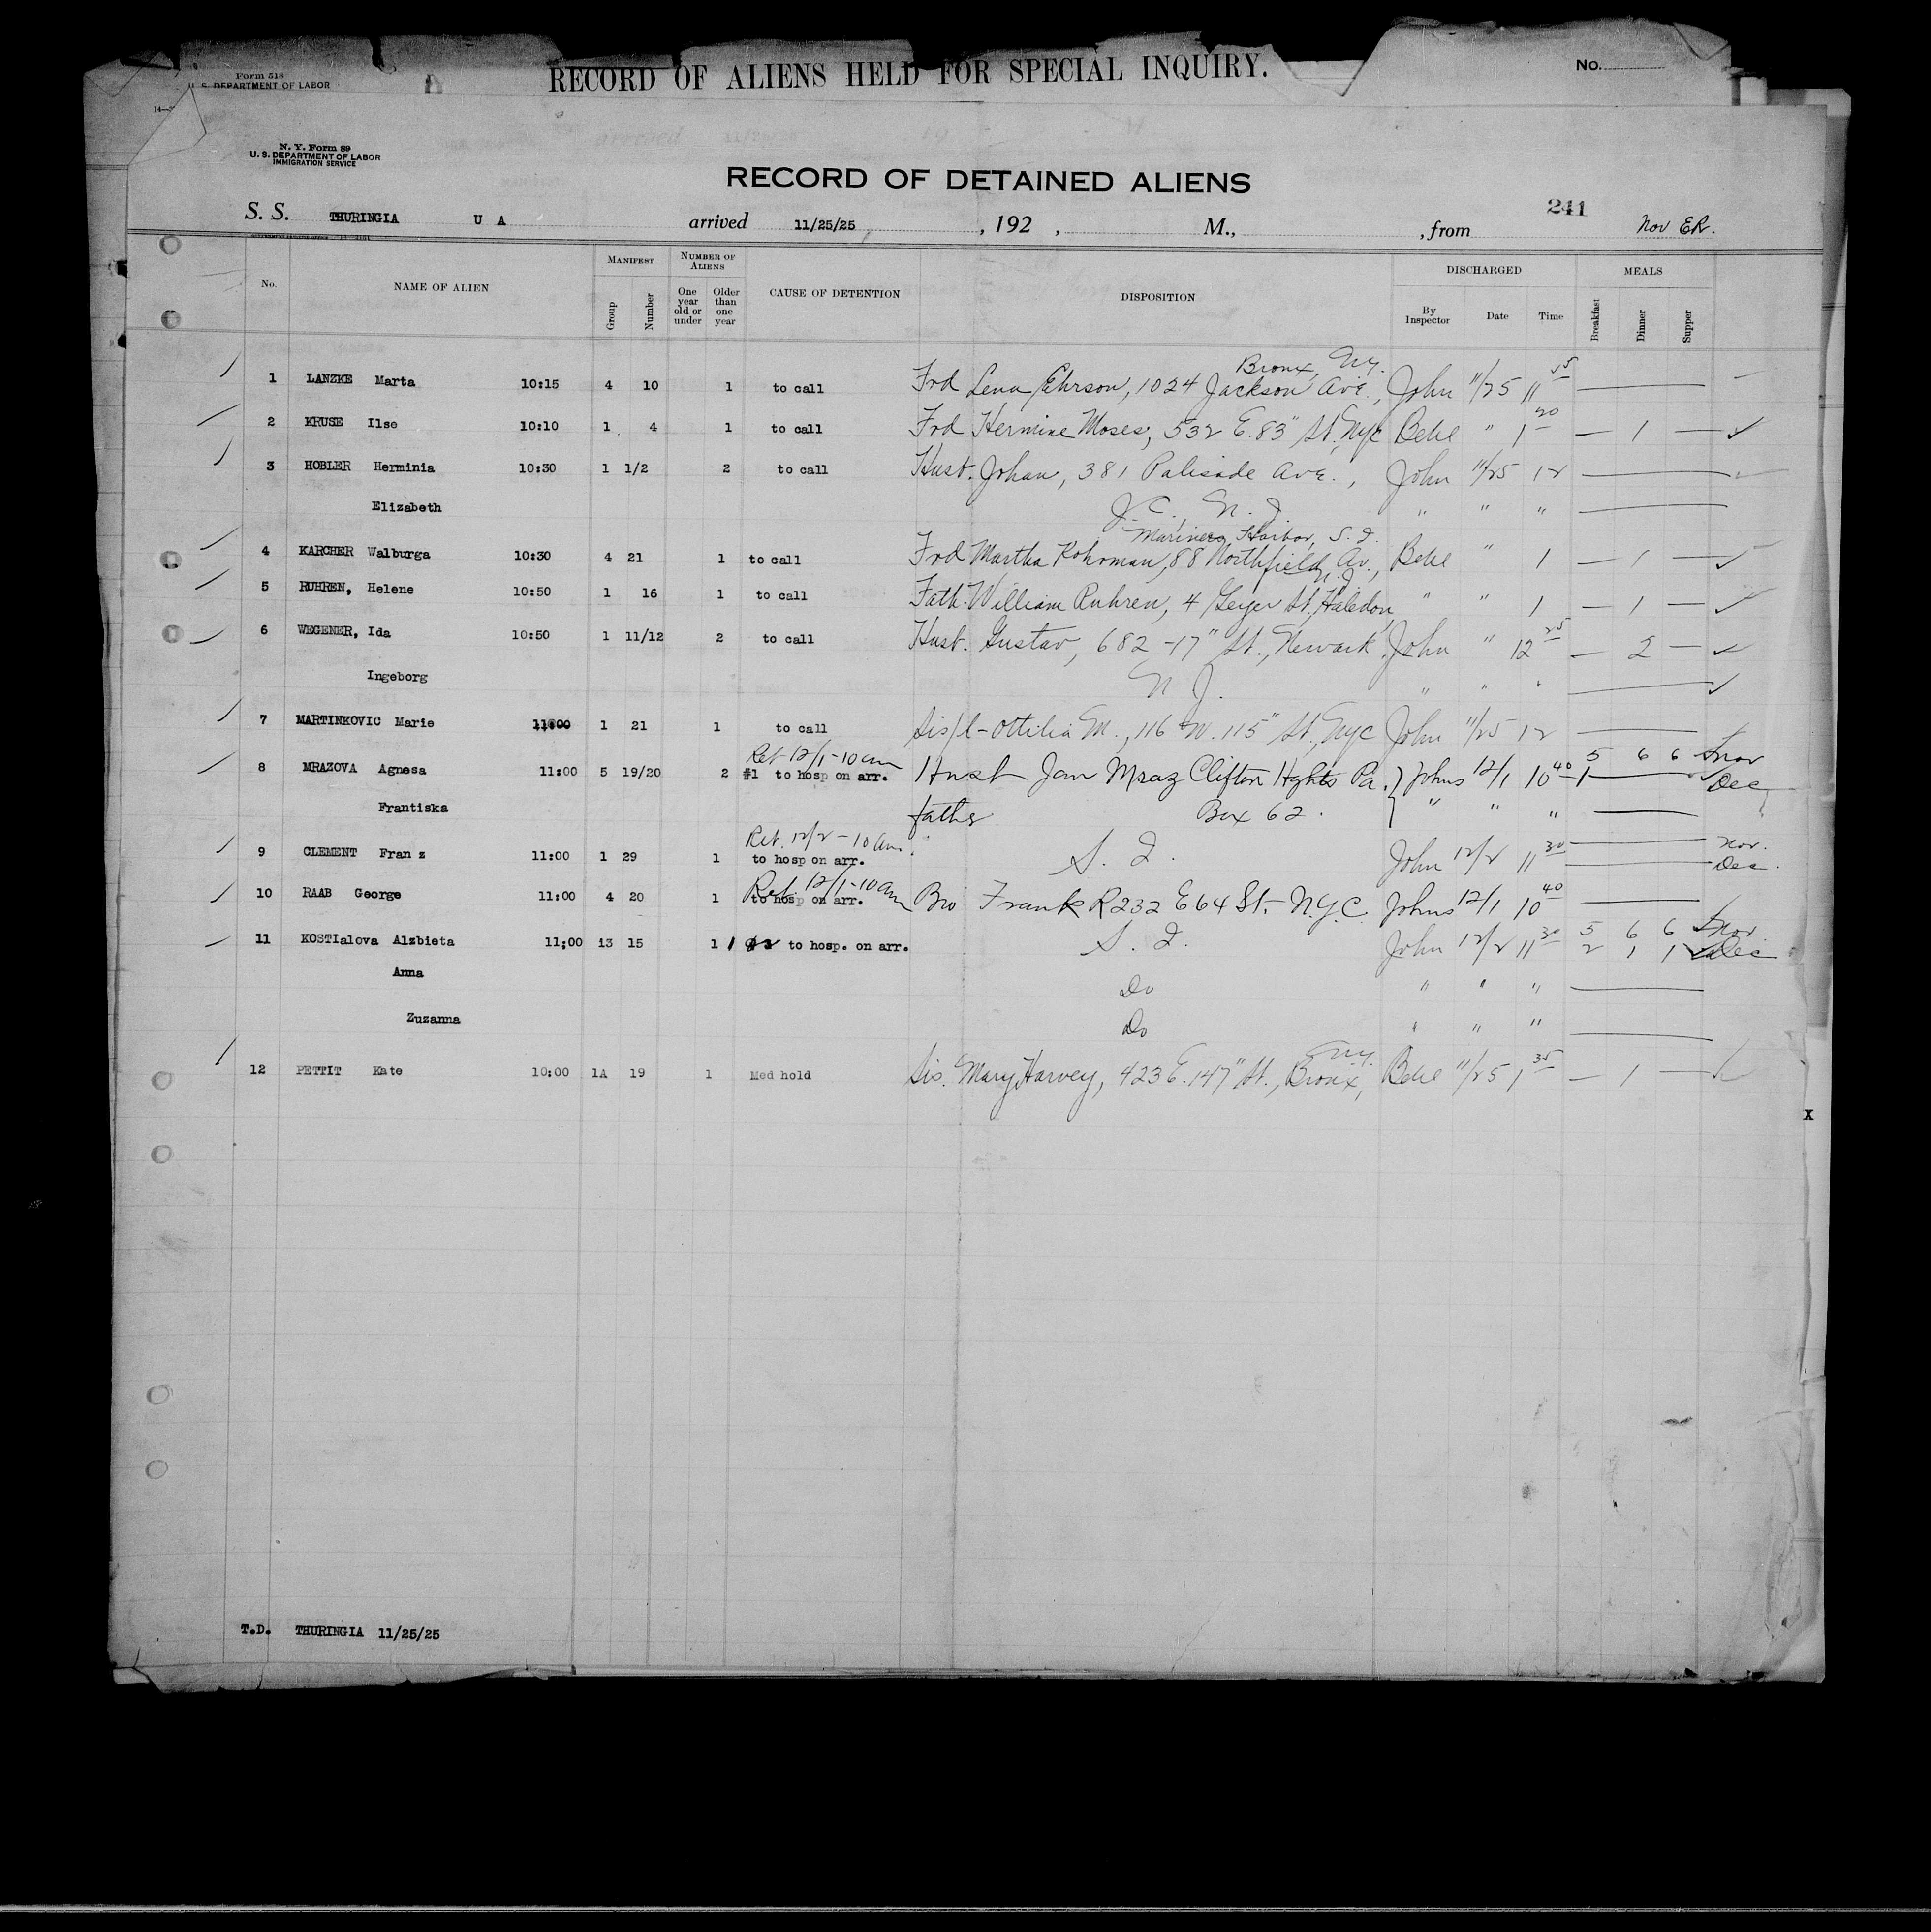 Form 518
U. S. DEPARTMENT OF LABOR
RECORD OF ALIENS HELD FOR SPECIAL INQUIRY.
No.
N. Y. Form 89
U. S. DEPARTMENT OF LABOR
IMMIGRATION SERVICE
RECORD OF DETAINED ALIENS
241
S. S. THURINGIA U A arrived 11/25/25, 192 , M., , from Nov ER.
No. NAME OF ALIEN MANIFEST Group Number NUMBER OF ALIENS One year old or under Older than one year CAUSE OF DETENTION DISPOSITION DISCHARGED By Inspector Date Time MEALS Breakfast Dinner Supper
Bronx, N.Y.
1 LANZKE Marta 10:15 4 10 1 to call Frd Lena Ehrson, 1024 Jackson Ave., John 11/25 11 55
2 KRUSE Ilse 10:10 1 4 1 to call Frd Hermine Moses, 532 E. 83" St., Nyc " 1 20 — 1 — ✓
3 HOBLER Herminia 10:30 1 1/2 2 to call Husb. Johan, 381 Palisade Ave., John 11/25 12
Elizabeth J. C. N. J. " " "
Mariners Harbor, S. I.
4 KARCHER Walburga 10:30 4 21 1 to call Frd Martha Kohrman, 88 Northfield Av., " 1 — 1 — ✓
N. J.
5 RUHREN, Helene 10:50 1 16 1 to call Fath. William Ruhren, 4 Geyer St., Haledon, " " 1 — 1 — ✓
6 WEGENER, Ida 10:50 1 11/12 2 to call Husb. Gustav, 682 - 17" St., Newark John " 12 25 — 2 — ✓
Ingeborg N. J. " " " ✓
7 MARTINKOVIC Marie 11:00 1 21 1 to call Sis/l - Ottilia M., 116 W. 115" St., Nyc John 11/25 12
Ret 12/1-10 am 5 6 6 Nov
8 MRAZOVA Agnesa 11:00 5 19/20 2 #1 to hosp on arr. Husb Jan Mraz Clifton Hghts Pa. Johns 12/1 10 40 1 Dec
Frantiska father Box 62. " " "
Ret. 12/2 - 10 am. Nov.
9 CLEMENT Franz 11:00 1 29 1 to hosp on arr. S. I. John 12/2 11 30 Dec.
Ret. 12/1-10 am
10 RAAB George 11:00 4 20 1 to hosp on arr. Bro Frank R 232 E 64 St. N.Y.C. Johns 12/1 10 40
5 6 6 Nov.
11 KOSTIalova Alzbieta 11;00 13 15 1 to hosp. on arr. S. I. John 12/2 11 30 2 1 1 Dec
Anna Do " " "
Zuzanna Do " " "
N.Y.
12 PETTIT Kate 10:00 1A 19 1 Med hold Sis. Mary Harvey, 423 E. 147" St., Bronx, 11/25 1 35 — 1 — ✓
X
T.D. THURINGIA 11/25/25